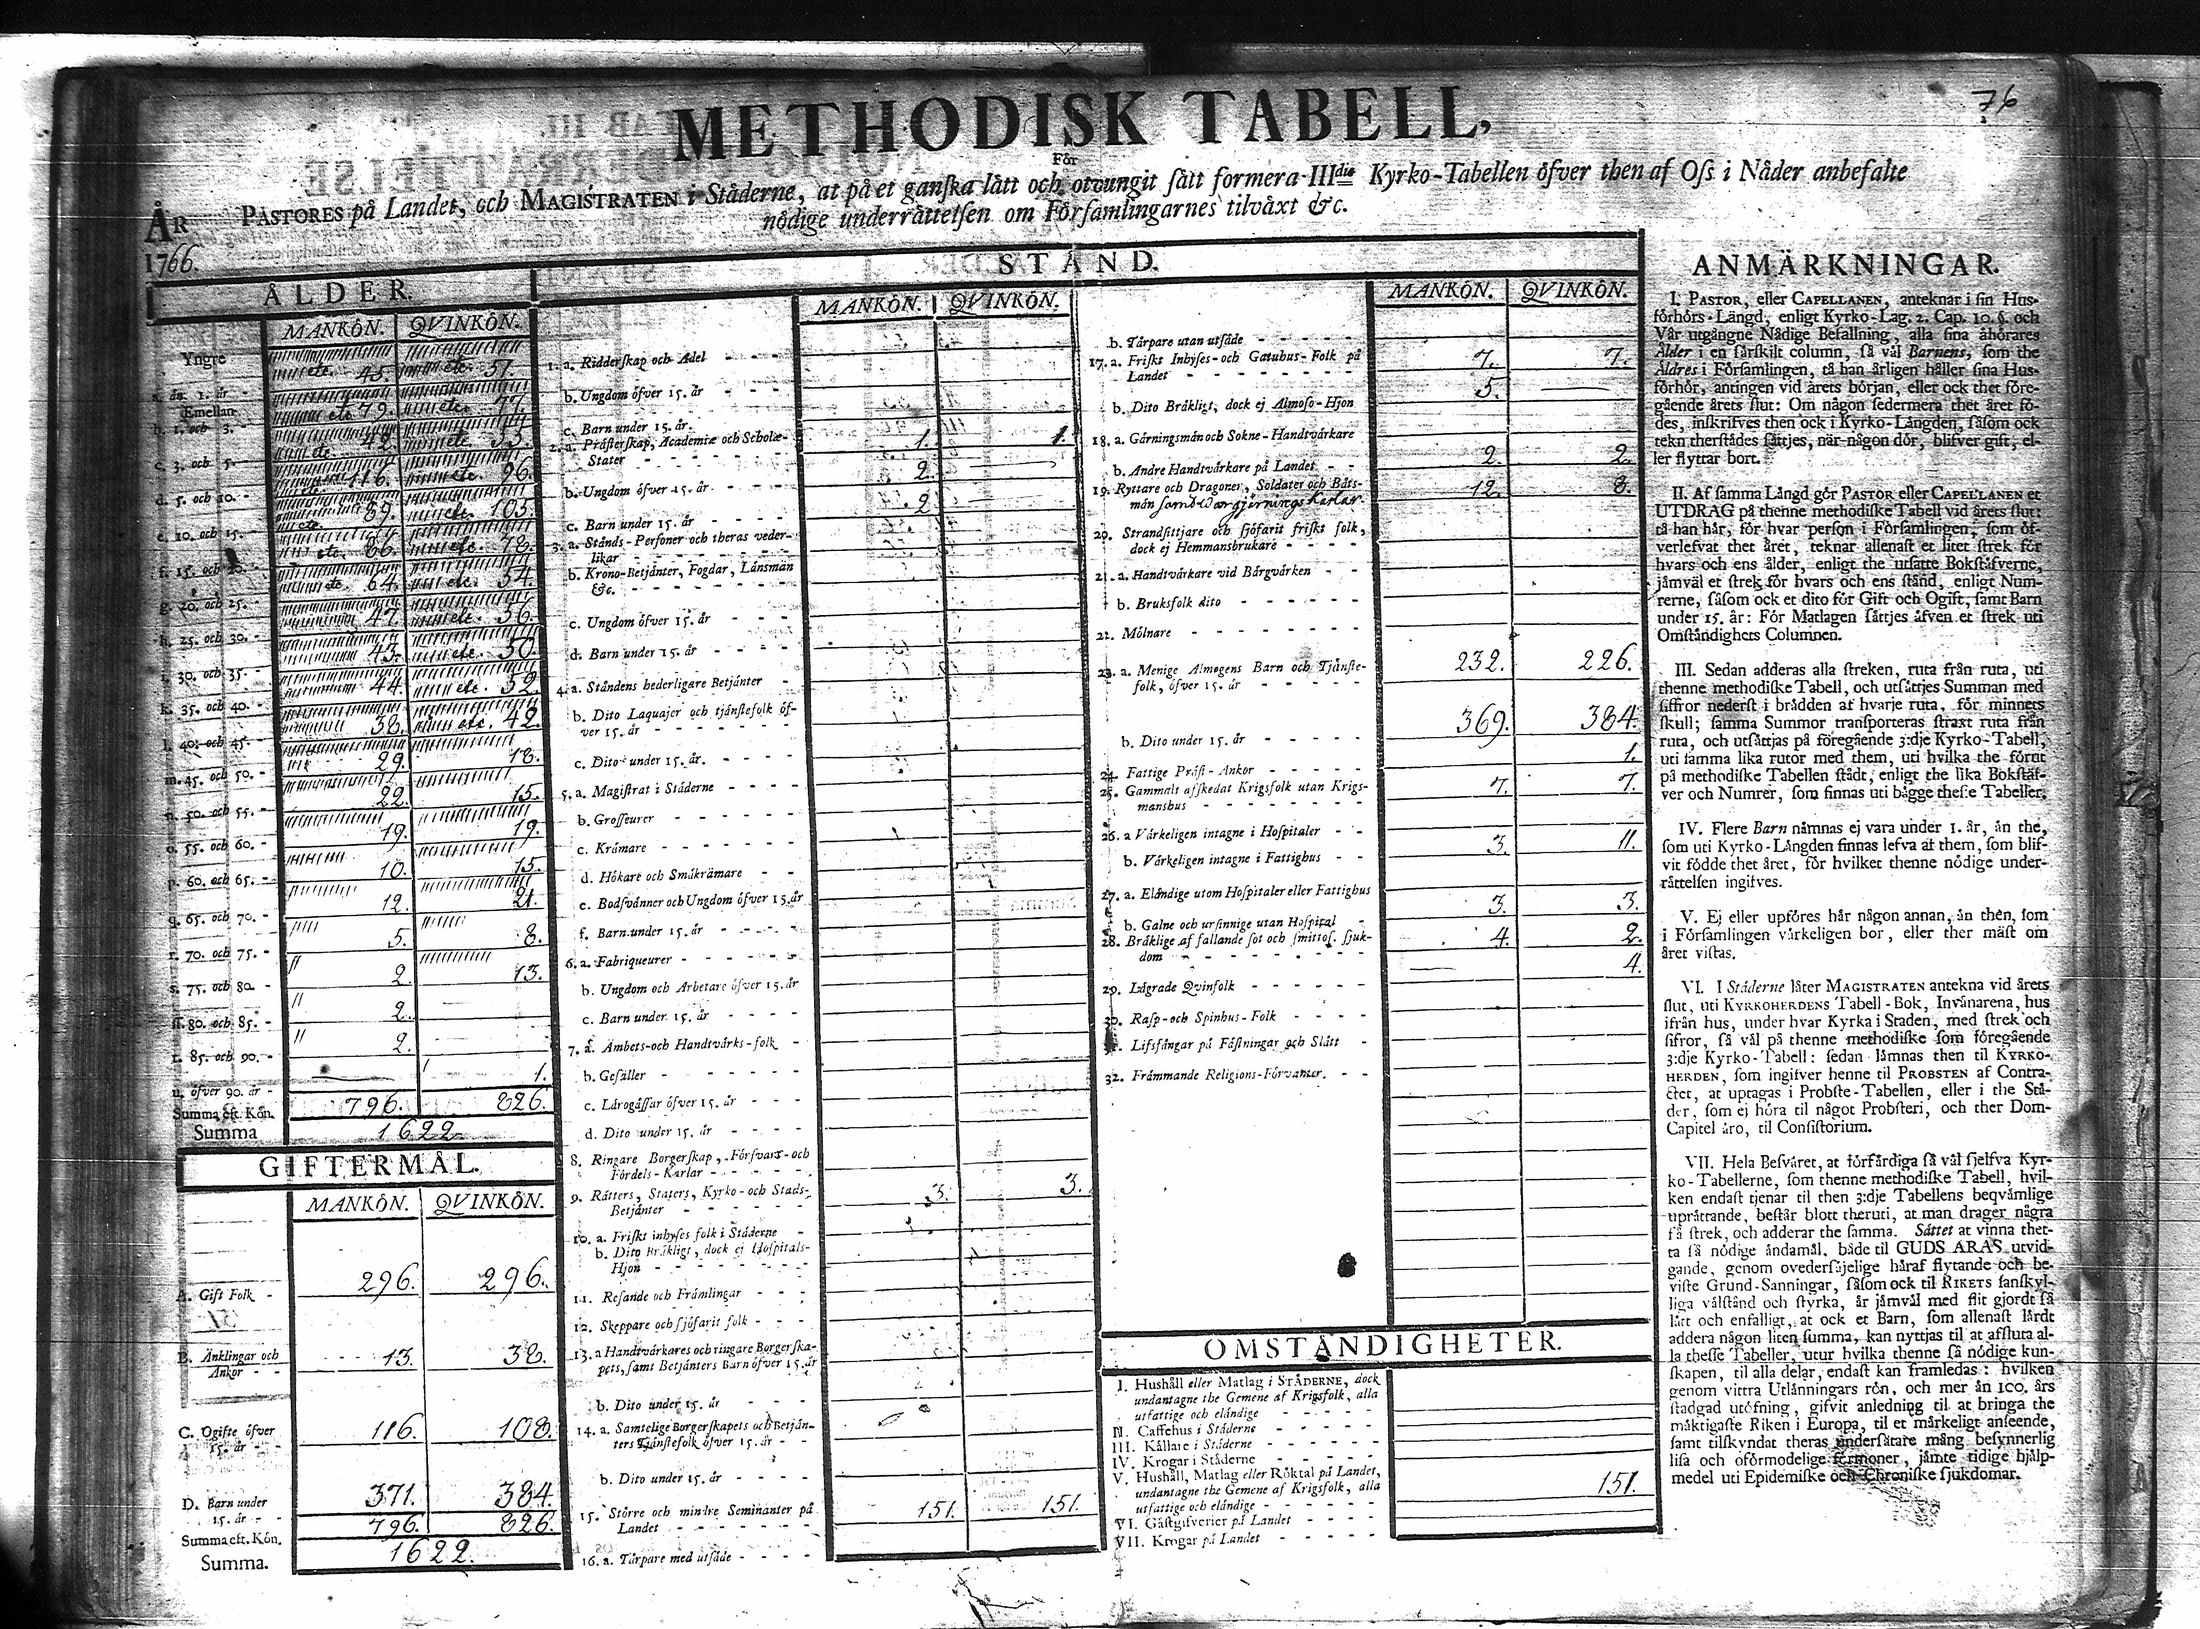 76
METHODISK TABELL,
För
PASTORES på Landet, och MAGISTRATEN i Ståderne, at på et ganska lått och otvungit sått formera IIIdie Kyrko-Tabellen öfver then af Oss i Nåder anbefalte
nödige underråttelsen om Församlingarnes tilvåxt &c.
ÅR
1766.
ÅLDER.
MANKÖN. QVINKÖN.
Yngre
a. ån 1. år - 45. 51.
Emellan
b. 1. och 3. - 79. 77.
c. 3. och 5. - 42. 53.
d. 5. och 10. - 116. 96.
e. 10. och 15. - 89. 103.
f. 15. och 20. - 66. 78.
g. 20. och 25. - 64. 54.
h. 25. och 30. - 47. 56.
i. 30. och 35. - 43. 50.
k. 35. och 40. - 44. 52.
l. 40. och 45. - 38. 42.
m. 45. och 50. - 29. 18.
n. 50. och 55. - 22. 15.
o. 55. och 60. - 19. 19.
p. 60. och 65. - 10. 15.
q. 65. och 70. - 12. 21.
r. 70. och 75. - 5. 8.
s. 75. och 80. - 2. 13.
ss. 80. och 85. - 2.
t. 85. och 90. - 2.
u. öfver 90. år - 1.
Summa eft. Kön. 796. 826.
Summa 1622.
GIFTERMÅL.
MANKÖN. QVINKÖN.
A. Gift Folk - 296. 296.
B. Änklingar och
Änkor - - 13. 38.
C. Ogifte öfver
15. år - - 116. 108.
D. Barn under
15. år - - 371. 384.
Summa eft. Kön. 796. 826.
Summa. 1622.
STÅND.
MANKÖN. QVINKÖN.
1. a. Ridderskap och Adel
b. Ungdom öfver 15. år -
c. Barn under 15. år.
2. a. Pråsterskap, Academiæ och Scholæ-
Stater 1. 1.
b. Ungdom öfver 15. år - 2.
c. Barn under 15. år 2.
3. a. Stånds-Personer och theras veder-
likar
b. Krono-Betjånter, Fogdar, Lånsmån
&c.
c. Ungdom öfver 15. år
d. Barn under 15. år
4. a. Ståndens hederligare Betjånter
b. Dito Laquajer och tjånstefolk öf-
ver 15. år
c. Dito under 15. år.
5. a. Magistrat i Ståderne
b. Grosseurer
c. Kråmare
d. Hökare och Småkråmare
e. Bodsvånner och Ungdom öfver 15. år
f. Barn under 15. år
6. a. Fabriqueurer
b. Ungdom och Arbetare öfver 15. år
c. Barn under 15. år
7. a. Åmbets-och Handtvårks-folk
b. Gesåller
c. Lårogåssar öfver 15. år
d. Dito under 15. år
8. Ringare Borgerskap, Försvars-och
Fördels-Karlar
9. Råtters, Staters, Kyrko-och Stads-
Betjånter 3. 3.
10. a. Friskt inhyses folk i Ståderne
b. Dito Bråkligt, dock ej Hospitals-
Hjon
11. Resande och Fråmlingar
12. Skeppare och sjöfarit folk
13. a Handtvårkares och ringare Borgerska-
pets, samt Betjånters Barn öfver 15. år
b. Dito under 15. år
14. a. Samtelige Borgerskapets och Betjån-
ters Tjånstefolk öfver 15. år
b. Dito under 15. år
15. Större och mindre Heminanter på
Landet 151. 151.
16. a. Tårpare med utsåde
MANKÖN. QVINKÖN.
b. Tårpare utan utsåde
17. a. Friskt Inhyses-och Gatuhus-Folk på
Landet 7. 7.
b. Dito Bråkligt, dock ej Almoso-Hjon 5.
18. a. Gårningsmån och Sokne-Handtvårkare
b. Andre Handtvårkare på Landet 2. 2.
19. Ryttare och Dragoner, Soldater och Båts-
mån 12. 8.
20. Strandsittjare och sjöfarit friskt folk,
dock ej Hemmansbrukare
21. a. Handtvårkare vid Bårgvårken
b. Bruksfolk dito
22. Mölnare
23. a. Menige Almogens Barn och Tjånste-
folk, öfver 15. år 232. 226.
b. Dito under 15. år 369. 384.
24. Fattige Pråst-Änkor 1.
25. Gammalt afskedat Krigsfolk utan Krigs-
manshus 7. 7.
26. a Vårkeligen intagne i Hospitaler
b. Vårkeligen intagne i Fattighus 3. 11.
27. a. Elåndige utom Hospitaler eller Fattighus
3. 3.
b. Galne och ursinnige utan Hospital
28. Bråklige af fallande sot och smittos. sjuk-
dom 4. 2.
29. Lågrade Qvinfolk 4.
30. Rasp-och Spinhus-Folk
31. Lifsfångar på Fåstningar och Slått
32. Fråmmande Religions-Förvanter.
OMSTÅNDIGHETER.
I. Hushåll eller Matlag i STÅDERNE, dock
undantagne the Gemene af Krigsfolk, alla
utfattige och elåndige
II. Caffehus i Ståderne
III. Kållare i Ståderne
IV. Krogar i Ståderne
V. Hushåll, Matlag eller Röktal på Landet,
undantagne the Gemene af Krigsfolk, alla
utfattige och elåndige 151.
VI. Gåstgifverier på Landet
VII. Krogar på Landet
ANMÄRKNINGAR.
I. PASTOR, eller CAPELLANEN, anteknar i sin Hus-
förhörs-Långd, enligt Kyrko-Lag. 2. Cap. 10. §. och
Vår utgångne Nådige Befallning, alla sina åhörares
Ålder i en sårskilt column, så vål Barnens, som the
Åldres i Församlingen, tå han årligen håller sina Hus-
förhör, antingen vid årets början, eller ock thet före-
gående årets slut: Om någon sedermera thet året fö-
des, inskrifves then ock i Kyrko-Långden, såsom ock
tekn therstådes såttjes, når någon dör, blifver gift, el-
ler flyttar bort.
II. Af samma Långd gör PASTOR eller CAPELLANEN et
UTDRAG på thenne methodiske Tabell vid årets slut:
tå han hår, för hvar person i Församlingen, som öf-
verlefvat thet året, teknar allenast et litet strek för
hvars och ens ålder, enligt the utsatte Bokståfverne,
jåmvål et strek för hvars och ens stånd, enligt Num-
rerne, såsom ock et dito för Gift och Ogift, samt Barn
under 15. år: För Matlagen såttjes åfven et strek uti
Omståndighets Columnen.
III. Sedan adderas alla streken, ruta från ruta, uti
thenne methodiske Tabell, och utsåttjes Summan med
siffror nederst i brådden af hvarje ruta, för minnets
skull; samma Summor transporteras straxt ruta från
ruta, och utsåttjas på föregående 3:dje Kyrko-Tabell,
uti samma lika rutor med them, uti hvilka the förut
på methodiske Tabellen stådt, enligt the lika Bokståf-
ver och Numrer, som finnas uti bågge thesse Tabeller.
IV. Flere Barn nåmnas ej vara under 1. år, ån the,
som uti Kyrko-Långden finnas lefva af them, som blif-
vit födde thet året, för hvilket thenne nödige under-
råttelsen ingifves.
V. Ej eller upföres hår någon annan, ån then, som
i Församlingen vårkeligen bor, eller ther måst om
året vistas.
VI. I Ståderne låter MAGISTRATEN antekna vid årets
slut, uti KYRKOHERDENS Tabell-Bok, Invånarena, hus
ifrån hus, under hvar Kyrka i Staden, med strek och
sifror, så vål på thenne methodiske som föregående
3:dje Kyrko-Tabell: sedan låmnas then til KYRKO-
HERDEN, som ingifver henne til PROBSTEN af Contra-
ctet, at uptagas i Probste-Tabellen, eller i the Stå-
der, som ej höra til något Probsteri, och ther Dom-
Capitel åro, til Consistorium.
VII. Hela Besvåret, at förfårdiga så vål sjelfva Kyr-
ko-Tabellerne, som thenne methodiske Tabell, hvil-
ken endast tjenar til then 3:dje Tabellens beqvåmlige
upråttande, består blott theruti, at man drager några
få strek, och adderar the samma. Såttet at vinna thet-
ta så nödige åndamål, både til GUDS ÅRAS utvid-
gande, genom ovedersåjelige håraf flytande och be-
viste Grund-Sanningar, såsom ock til RIKETS sanskyl-
liga vålstånd och styrka, år jåmvål med flit gjordt så
lått och enfalligt, at ock et Barn, som allenast lårdt
addera någon liten summa, kan nyttjas til at afsluta al-
la thesse Tabeller, utur hvilka thenne så nödige kun-
skapen, til alla delar, endast kan framledas: hvilken
genom vittra Utlånningars rön, och mer ån 100. års
stadgad utöfning, gifvit anledning til at bringa the
måktigaste Riken i Europa, til et mårkeligt anseende,
samt tilskyndat theras undersåtare mång besynnerlig
lisa och oförmodelige förmoner, jåmte tidige hjålp-
medel uti Epidemiske och Chroniske sjukdomar.